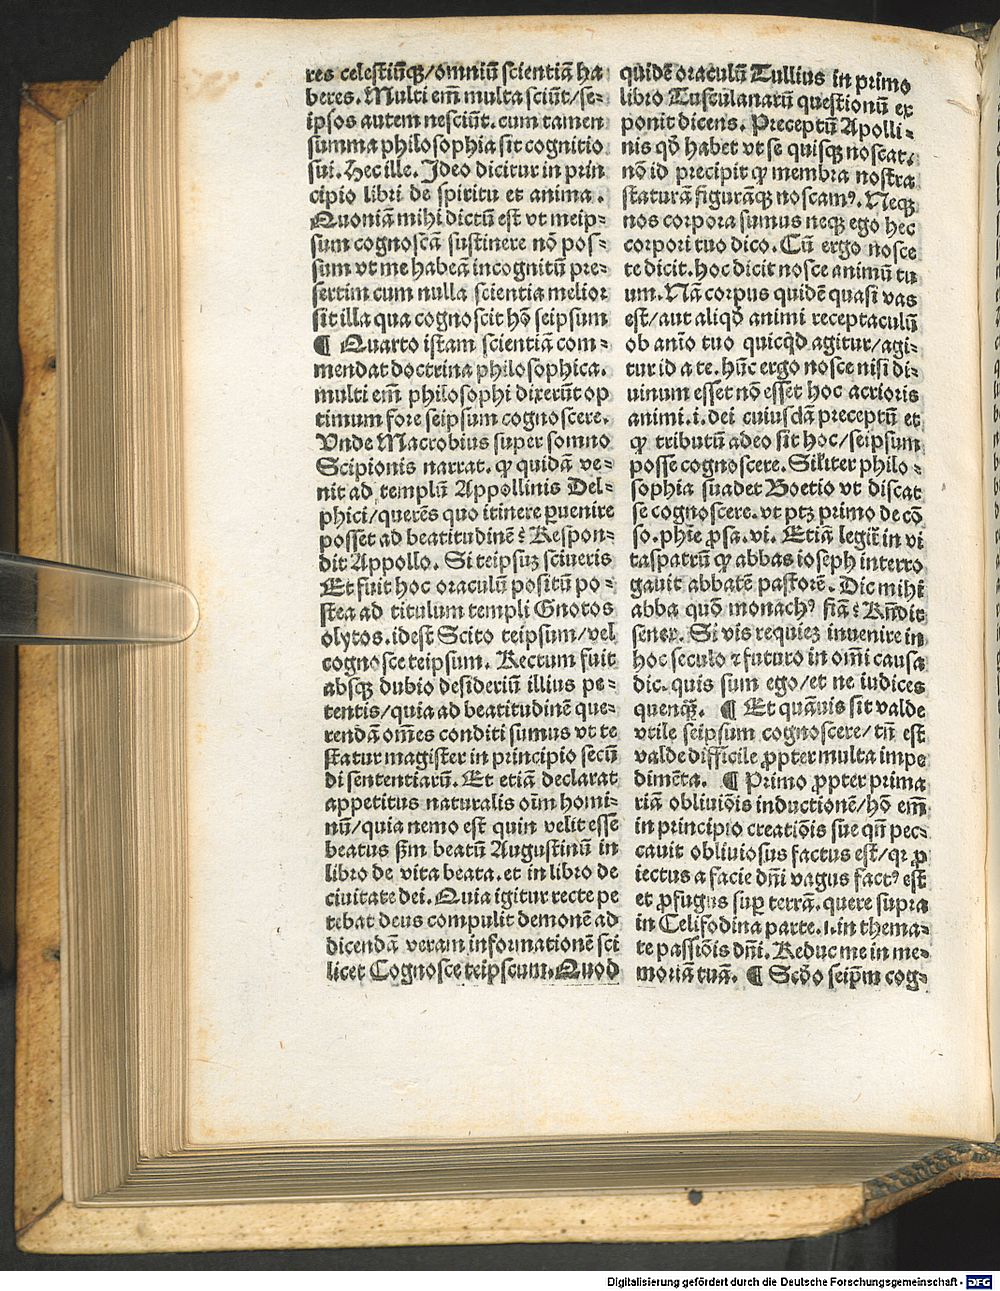 res celestiūqꝫ/omniū scientiā ha
beres. Multi em̄ multa sciūt/se⸗
ipsos autem nesciūt. cum tamen
summa philosophia sit cognitio
sui. Hec ille. Ideo dicitur in prin
cipio libri de spiritu et anima.
Quoniā mihi dictū est vt meip⸗
sum cognoscā sustinere nō pos⸗
sum vt me habeā incognitū pre⸗
sertim cum nulla scientia melior
sit illa qua cognoscit hō seipsum
¶ Quarto istam scientiā com⸗
mendat doctrina philosophica.
multi em̄ philosophi dixerūt op
timum fore seipsum cognoscere.
Vnde Macrobius super somno
Scipionis narrat. ꝙ quidā ve⸗
nit ad templū Appollinis Del⸗
phici/querēs quo itinere ꝑuenire
posset ad beatitudinē: Respon⸗
dit Appollo. Si teipsuꝫ sciueris
Et fuit hoc oraculū positū po⸗
stea ad titulum templi Gnotos
olytos. idest Scito teipsum/vel
cognosce teipsum. Rectum fuit
absqꝫ dubio desideriū illius pe⸗
tentis/quia ad beatitudinē que⸗
rendā om̄es conditi sumus vt te
statur magister in principio secū
di sententiarū. Et etiā declarat
appetitus naturalis oīm homi⸗
nū/quia nemo est quin velit esse
beatus ẜm beatū Augustinū in
libro de vita beata. et in libro de
ciuitate dei. Quia igitur recte pe
tebat deus compulit demonē ad
dicendā veram informationē sci
licet Cognosce teipscum. Quod
quidē oraculū Tullius in primo
libro Tusculanarū questionū ex
ponit dicens. Preceptū Apolli⸗
nis qd̄ habet vt se quisqꝫ noscat.
nō id precipit ꝙ membra nostra
staturā figurāqꝫ noscamꝰ. Neqꝫ
nos corpora sumus neqꝫ ego hec
corpori tuo dico. Cū ergo nosce
te dicit. hoc dicit nosce animū tu
um. Nā corpus quidē quasi vas
est/aut aliqd̄ animi receptaculū
ob anīo tuo quicqd̄ agitur/agi⸗
tur id a te. hūc ergo nosce nisi di⸗
uinum esset nō esset hoc acrioris
animi. i. dei cuiusdā preceptū et
ꝙ tributū adeo sit hoc/seipsum
posse cognoscere. Sil̄iter philo⸗
sophia suadet Boetio vt discat
se cognoscere. vt ptꝫ primo de cō
so. phīe ꝓsa. vi. Etiā legit̄ in vi
taspatrū ꝙ abbas ioseph interro
gauit abbatē pastorē. Dic mihi
abba quō monachꝰ fiā: Rn̄dit
senex. Si vis requieꝫ inuenire in
hoc seculo ⁊ futuro in om̄i causa
dic. quis sum ego/et ne iudices
quenqꝫ. ¶ Et quāuis sit valde
vtile seipsum cognoscere/tn̄ est
valde difficile ꝓpter multa impe
dimēta. ¶ Primo ꝓpter prima
riā obliuiōis inductionē/hō em̄
in principio creatiōis sue qn̄ pec⸗
cauit obliuiosus factus est/qꝛ ꝓ
iectus a facie dn̄i vagus factꝰ est
et ꝓfugus suꝑ terrā. quere supra
in Celifodina parte. i. in thema⸗
te passiōis dn̄i. Reduc me in me⸗
moriā tuā. ¶ Scd̄o seip̄m cog⸗
Digitalisierung gefördert durch die Deutsche Forschungsgemeinschaft - DFG